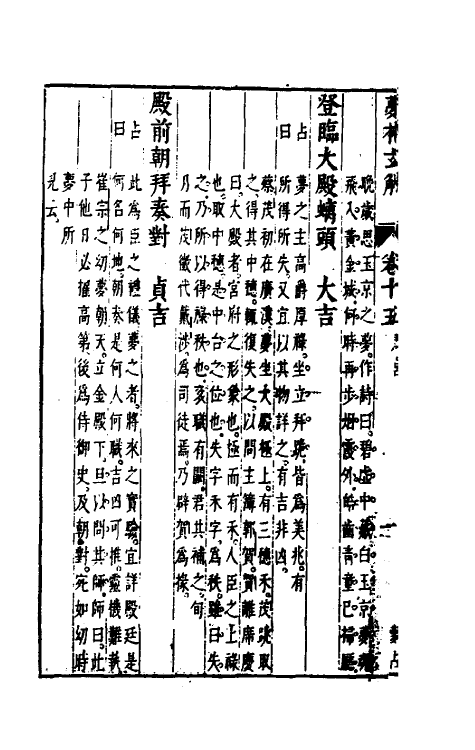 夢林玄解 卷十五
晚歲思玉京之夢作詩曰碧虛中藏白玉京夢魂
飛入黃金城何時再步烟霞外皓齒青童已掃廳
登臨大殿螭頭 大吉
占曰
夢之主高爵厚祿坐立拜跪皆為美兆有
所得所失又宜以其物詳之有吉非凶
蔡茂初在廣漢夢坐大殿極上有三穗禾茂跳取
之得其中穗輒復失之以問主簿郭賀賀離席慶
曰大殿者宮府之形象也極而有禾人臣之上祿
也取中穗是中台之位也失字禾字為秩雖曰失
之乃所以得祿秩也袞職有闕君其補之旬
月而茂徵代戴涉為司徒焉乃辟賀為掾
殿前朝拜奏對 貞吉
占曰
此為臣之禮儀夢之者將來之實驗宜詳殿廷是
何名何地朝奏是何人何職吉凶可推靈機難執
崔宗之幼夢朝天立金殿下旦以問其師師曰此
子他日必擢高第後為侍御史及朝對宛如幼時
夢中所
見云